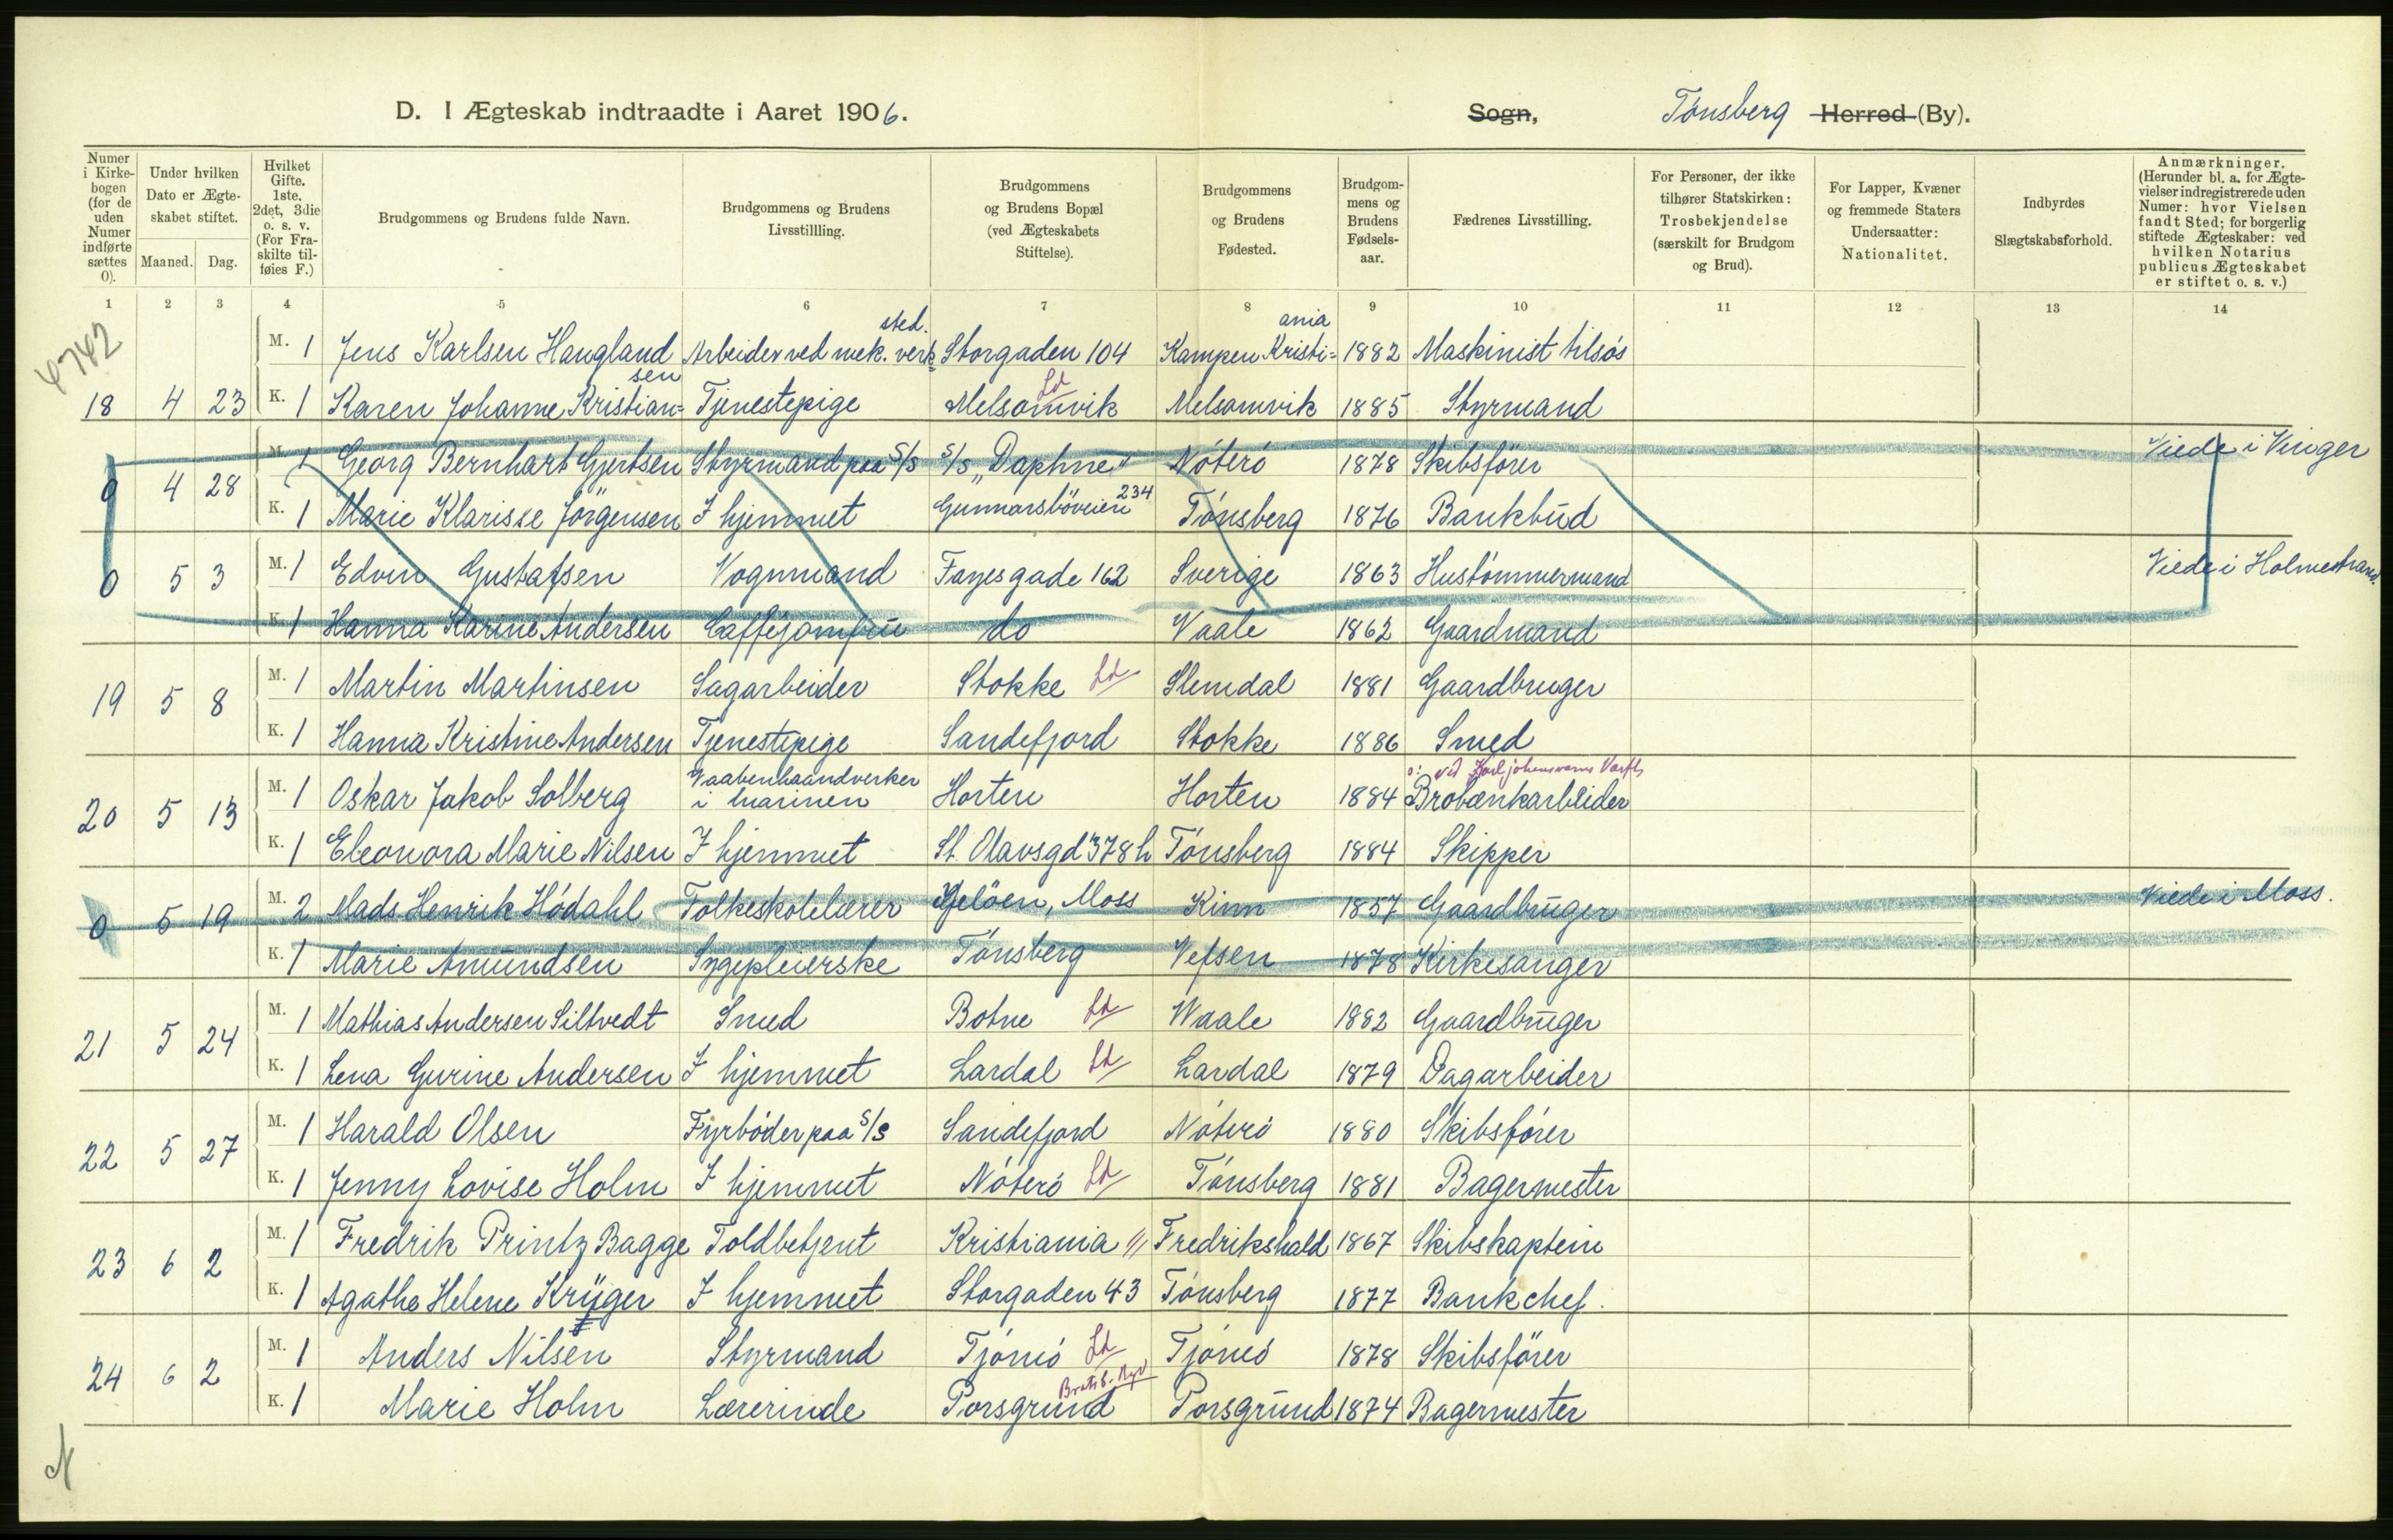 D. I Ægteskab indtraadte i Aaret 1906.
Sogn, Tønsberg Herred (By).
Numer i Kirkebogen (for de uden Numer indførte sættes 0).
Under hvilken Dato er Ægteskabet stiftet.
Maaned. Dag.
Hvilket Gifte. 1ste. 2det, 3die o. s. v. (For Fraskilte tilføies F.)
Brudgommens og Brudens fulde Navn.
Brudgommens og Brudens Livsstillling.
Brudgommens og Brudens Bopæl (ved Ægteskabets Stiftelse).
Brudgommens og Brudens Fødested.
Brudgommens og Brudens Fødselsaar.
Fædrenes Livsstilling.
For Personer, der ikke tilhører Statskirken: Trosbekjendelse (særskilt for Brudgom og Brud).
For Lapper, Kvæner og fremmede Staters Undersaatter: Nationalitet.
Indbyrdes Slægtskabsforhold.
Anmærkninger. (Herunder bl. a. for Ægtevielser indregistrerede uden Numer: hvor Vielsen fandt Sted; for borgerlig stiftede Ægteskaber: ved hvilken Notarius publicus Ægteskabet er stiftet o. s. v.)
1 2 3 4 5 6 7 8 9 10 11 12 13 14
4742
M. 1 Jens Karlsen Haugland Arbeider ved mek. verksted. Storgaden 104 Kampen Kristiania 1882 Maskinist tilsøs
18 4 23 K. 1 Karen Johanne Kristiansen Tjenestepige Melsomvik Ld Melsomvik 1885 Styrmand
M. 1 Georg Bernhart Gjertsen Styrmand paa S/S S/S „Daphne" Nøterø 1878 Skibsfører Viede i Vinger
0 4 28 K. 1 Marie Klarisse Jörgensen I hjemmet Gunnarsböveien 234 Tønsberg 1876 Bankbud
0 5 3 M. 1 Edvin Gustafsen Vognmand Fayesgade 162 Sverige 1863 Hustømmermand Viede i Holmestrand.
K. 1 Hanna Karine Andersen Caffejomfru do Vaale 1862 Gaardmand
19 5 8 M. 1 Martin Martinsen Sagarbeider Stokke Ld Slemdal 1881 Gaardbruger
K. 1 Hanna Kristine Andersen Tjenestepige Sandefjord Stokke 1886 Smed
20 5 13 M. 1 Oskar Jakob Solberg Vaabenhaandverker i marinen Horten Horten 1884 Brobænkarbeider ɔ: ved Karljohansværns Værft
K. 1 Eleonora Marie Nilsen I hjemmet St. Olavsgd 378 h Tønsberg 1884 Skipper
0 5 19 M. 2 Mads Henrik Hódahl Folkeskolelærer Gjelöen, Moss Kinn 1857 Gaardbruger Viede i Moss.
K. 1 Marie Amundsen Sygepleierske Tønsberg Vefsen 1878 Kirkesanger
21 5 24 M. 1 Mathias Andersen Siltvedt Smed Botne Ld Waale 1882 Gaardbruger
K. 1 Lena Gurine Andersen I hjemmet Lardal Ld Lardal 1879 Dagarbeider
22 5 27 M. 1 Harald Olsen Fyrbøder paa S/S Sandefjord Nøterø 1880 Skibsfører
K. 1 Jenny Lovise Holm I hjemmet Nøterø Ld Tønsberg 1881 Bagermester
23 6 2 M. 1 Fredrik Printz Bagge Toldbetjent Kristiania // Fredrikshald 1867 Skibskaptein
K. 1 Agathe Helene Krüger I hjemmet Storgaden 43 Tønsberg 1877 Bankchef.
24 6 2 M. 1 Anders Nilsen Styrmand Tjømø Ld Tjømø 1878 Skibsfører
K. 1 Marie Holm Lærerinde Porsgrund Porsgrund 1874 Bagermester